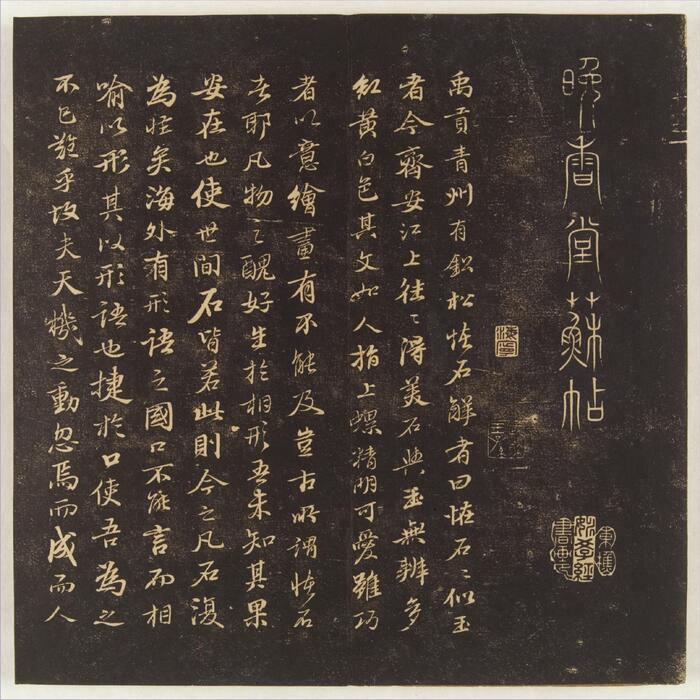 晚香堂蘇帖
禹貢青州有鈆松怪石解者曰怪石石似玉
者今齊安江上往往得美石與玉無辨多
紅黃白色其文如人指上螺精明可愛雖巧
者以意繪畫有不能及豈古所謂怪石
者耶凡物之醜好生於相形吾未知其果
安在也使世間石皆若此則今之凡石復
為怪矣海外有形語之國口不能言而相
喻以形其以形語也捷於口使吾為之
不已難乎故夫天機之動忽焉而成而人